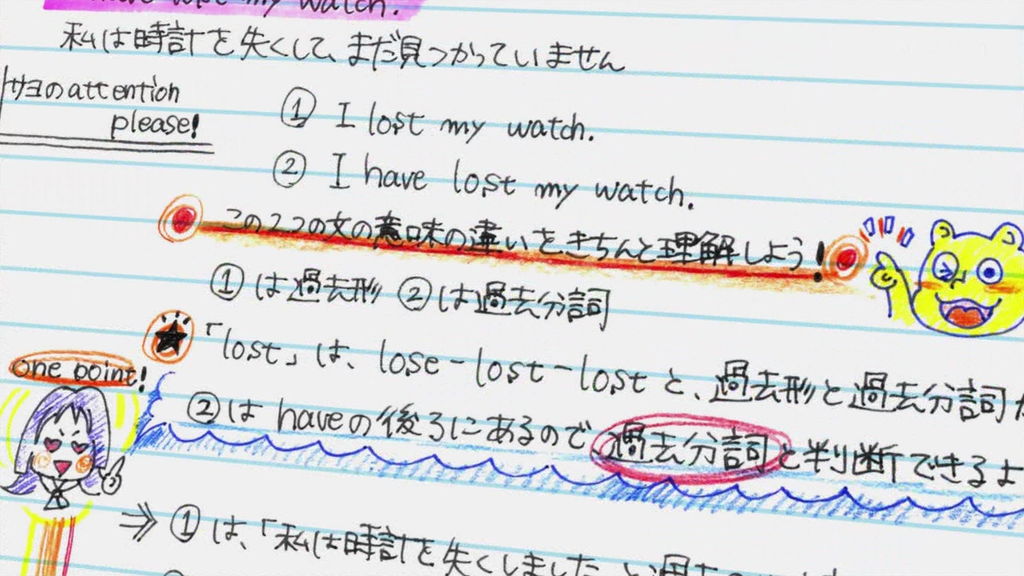 lost my watch.
私は時計を失くして、まだ見つかっていません
サヨのattention
please!
① I lost my watch.
② I have lost my watch.
この2つの文の意味の違いをきちんと理解しよう!
①は過去形 ②は過去分詞
★「lost」は、lose-lost-lostと、過去形と過去分詞が
one point!
②はhaveの後ろにあるので過去分詞と判断できるよ
⇒ ①は、「私は時計を失くしました